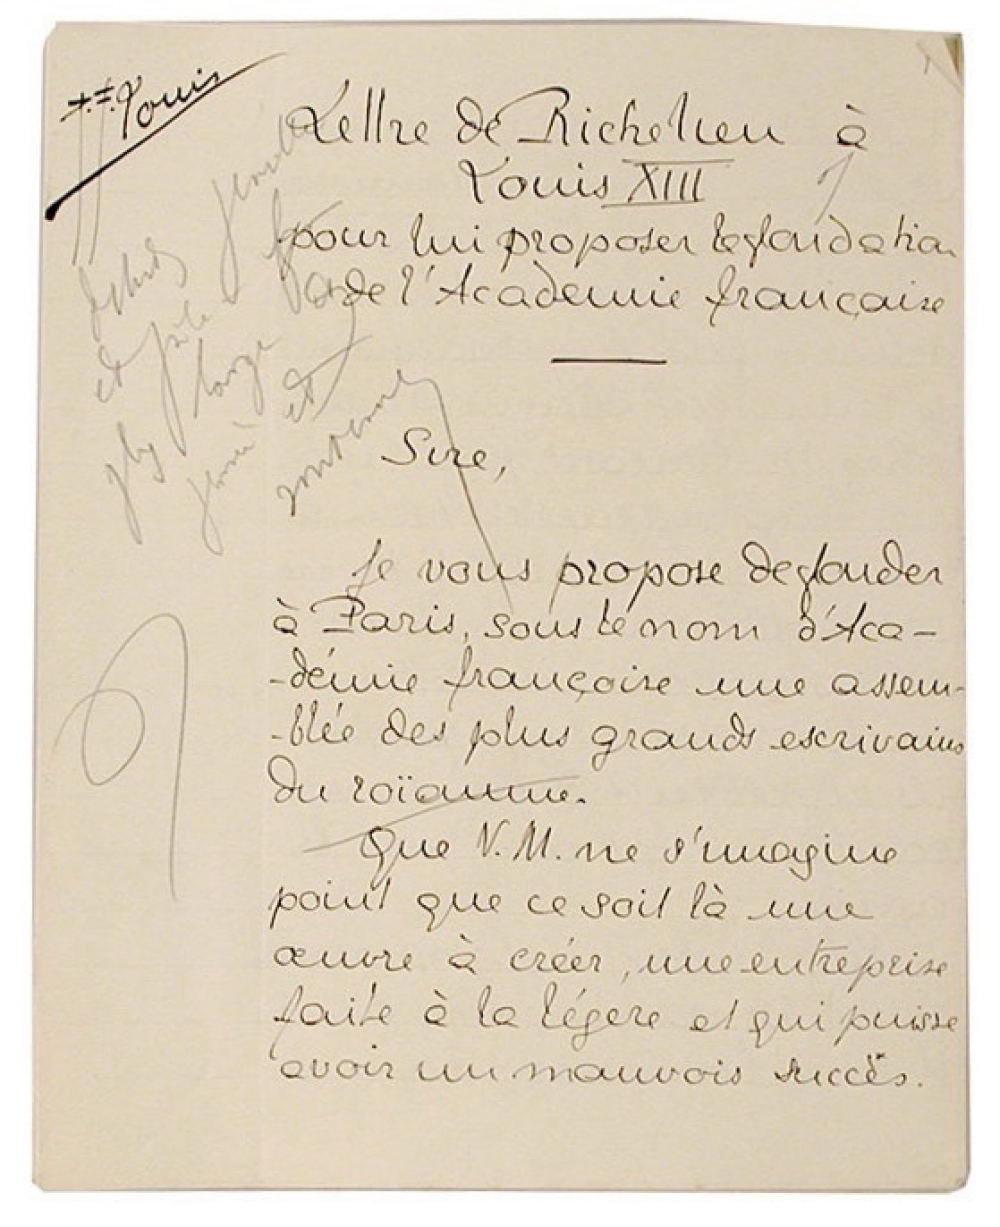 P. Louis
Lettre de Richelieu à
Louis XIII
pour lui proposer la fondation
de l'Académie française
Sire,
Je vous propose de fonder
à Paris, sous le nom d'Aca-
-démie françoise une assem-
-blée des plus grands escrivains
du roïaume.
Que V.M. ne s'imagine
point que ce soit là une
œuvre à créer, une entreprise
faite à la légère et qui puisse
avoir un mauvois succès.
et
large
et